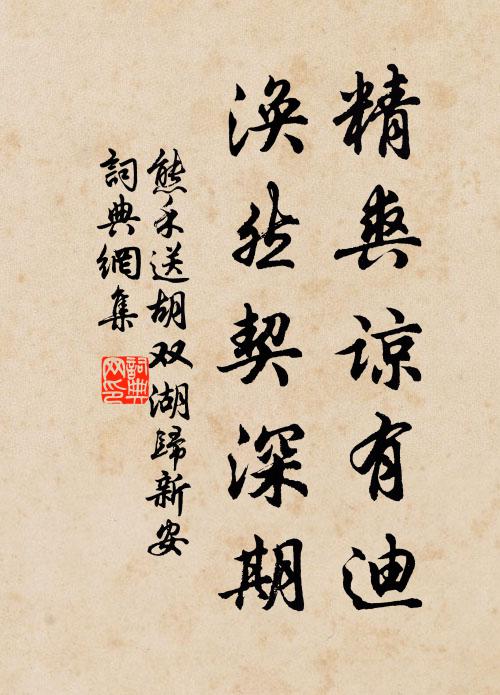 精爽谅有迪
渙然契深期
熊禾送胡双湖歸新安
詞典網集
詞典網印